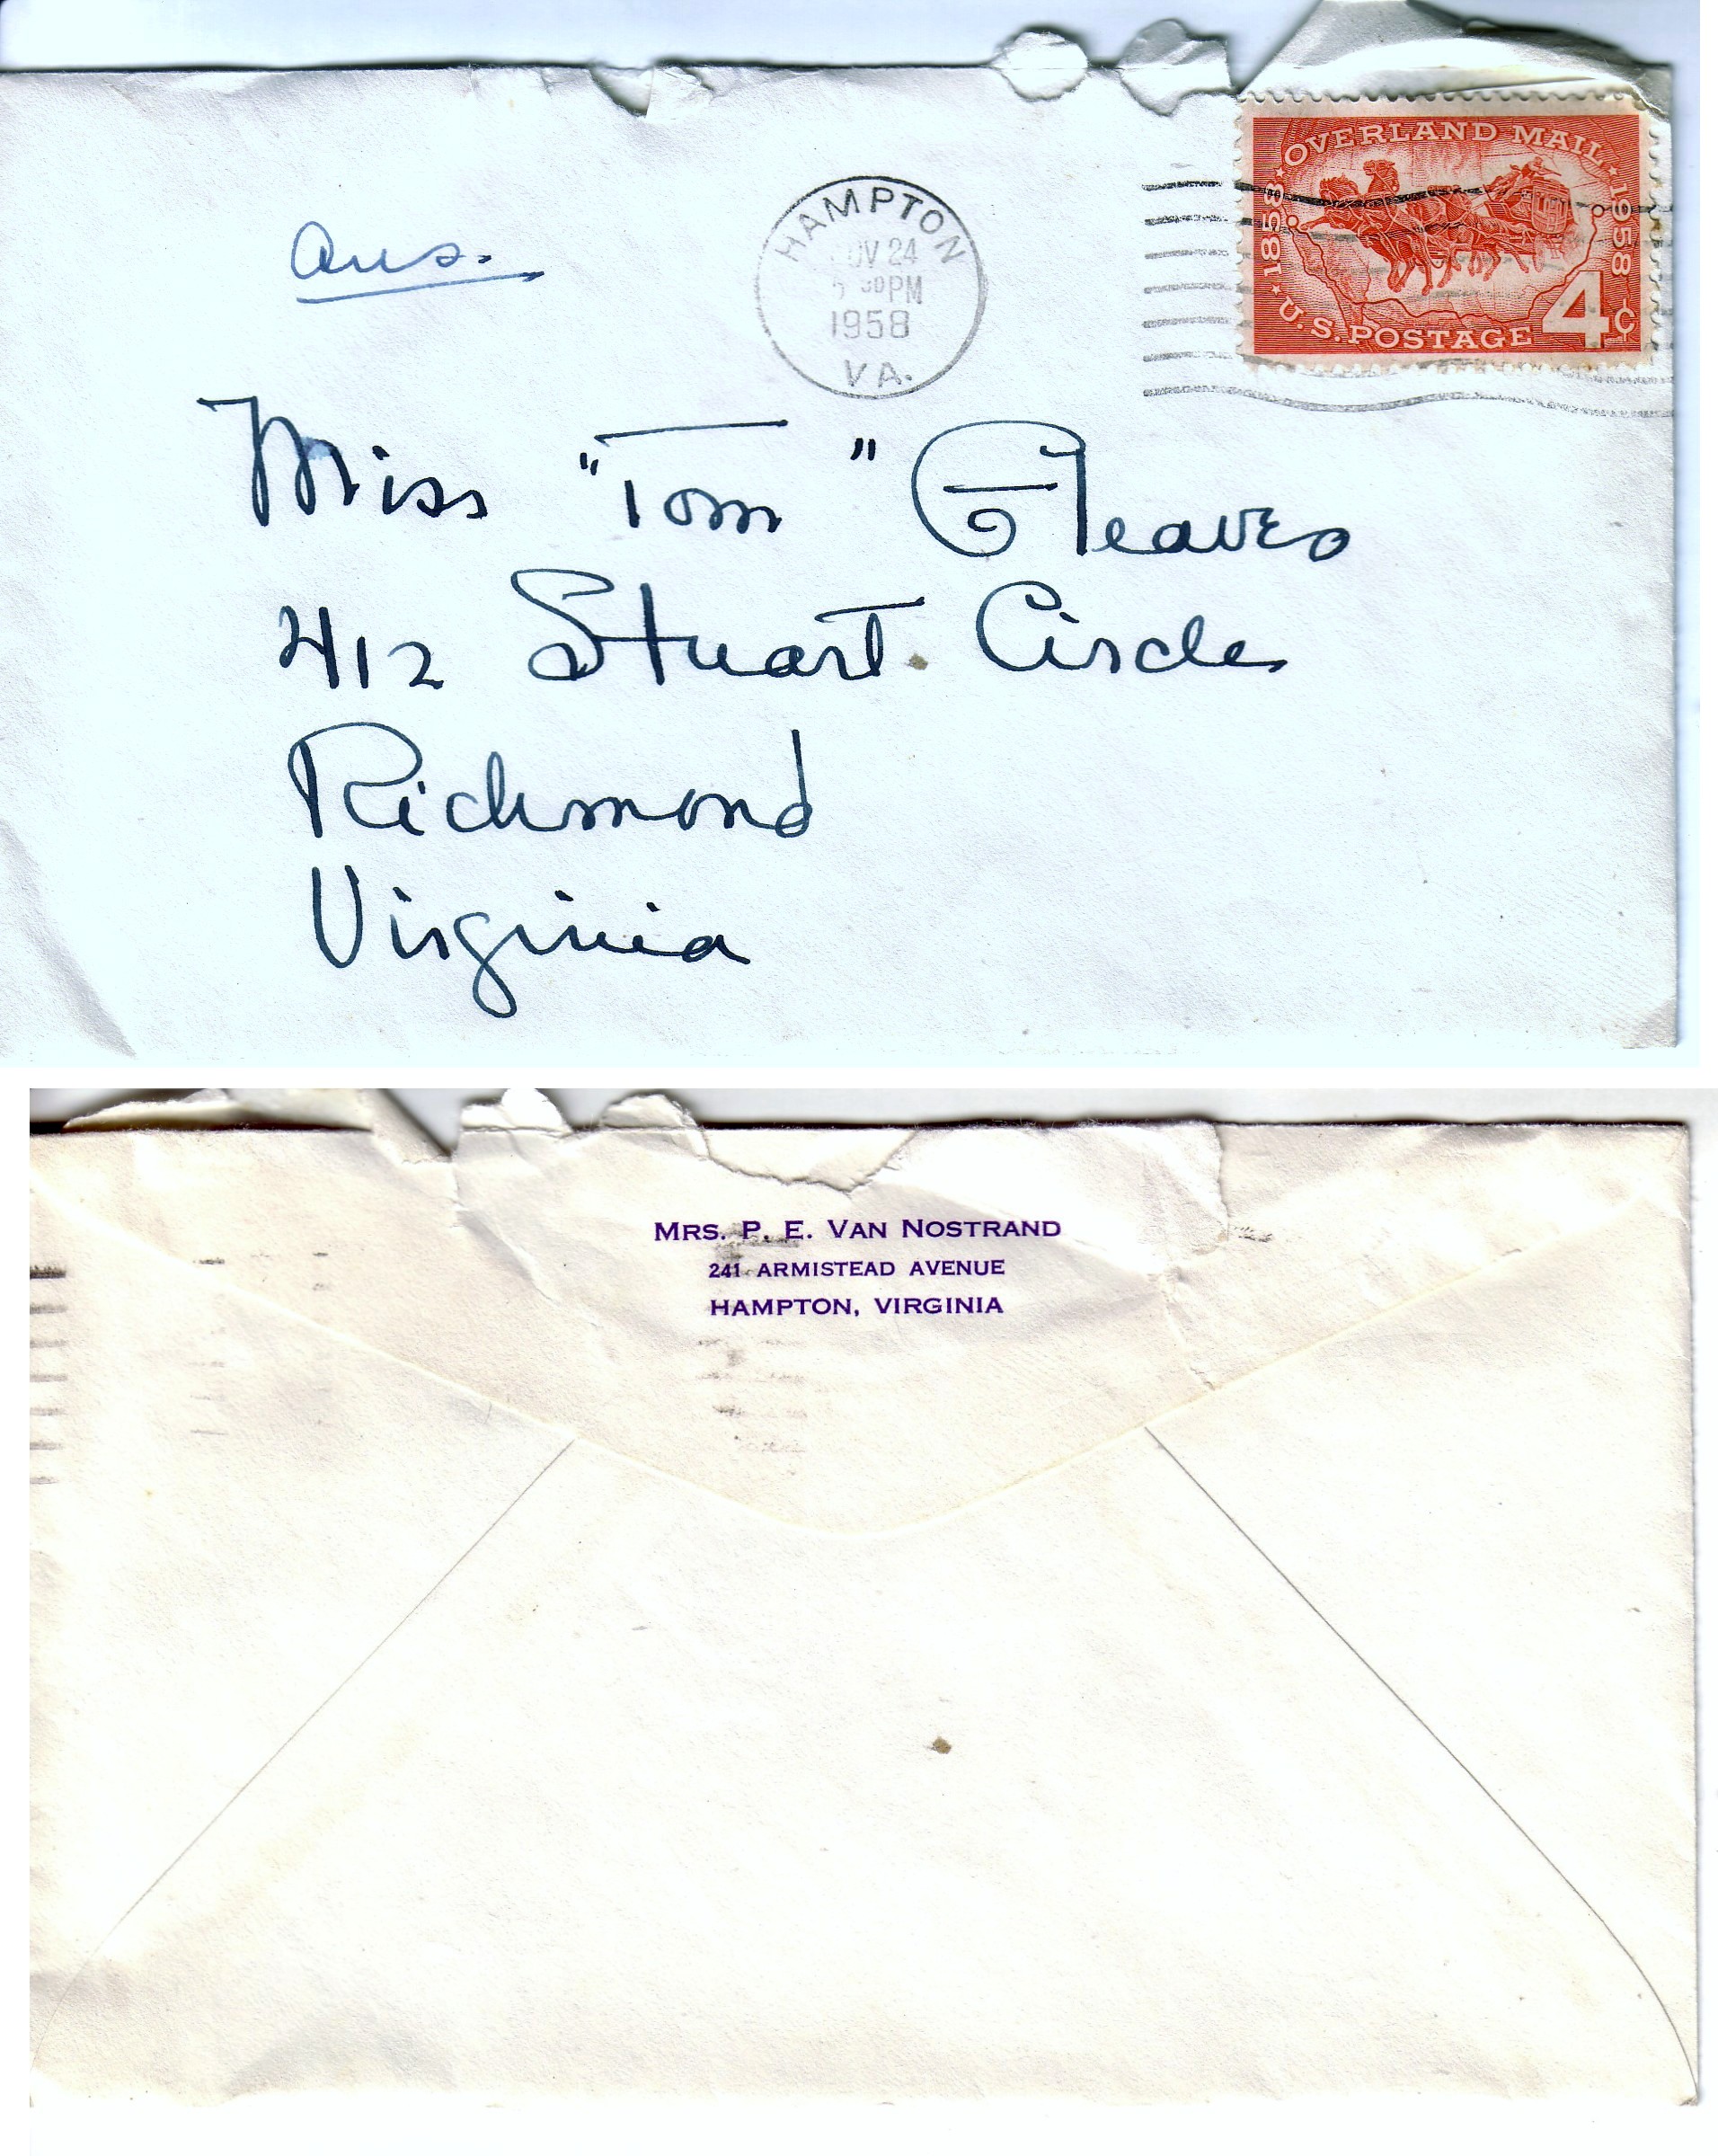 OVERLAND MAIL
1858
1958
U.S. POSTAGE 4¢
HAMPTON
OV 24
PM
1958
VA.
ans.
Miss "Tom" Gleaves
412 Stuart Circle
Richmond
Virginia
MRS. P. E. VAN NOSTRAND
241 ARMISTEAD AVENUE
HAMPTON, VIRGINIA